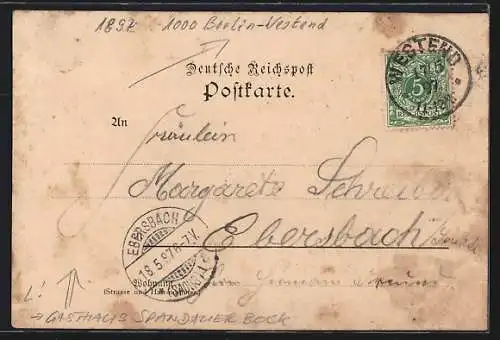 1897 1000 Berlin-Westend
Deutsche Reichspost
Postkarte.
WESTEND
5
An
Fräulein
Margarete Schreiber
Ebersbach
EBERSBACH
18.5.97. 8-7.V.
Wohnung
(Strasse und Hausnummer)
L!
→ GASTHAUS SPANDAUER BOCK